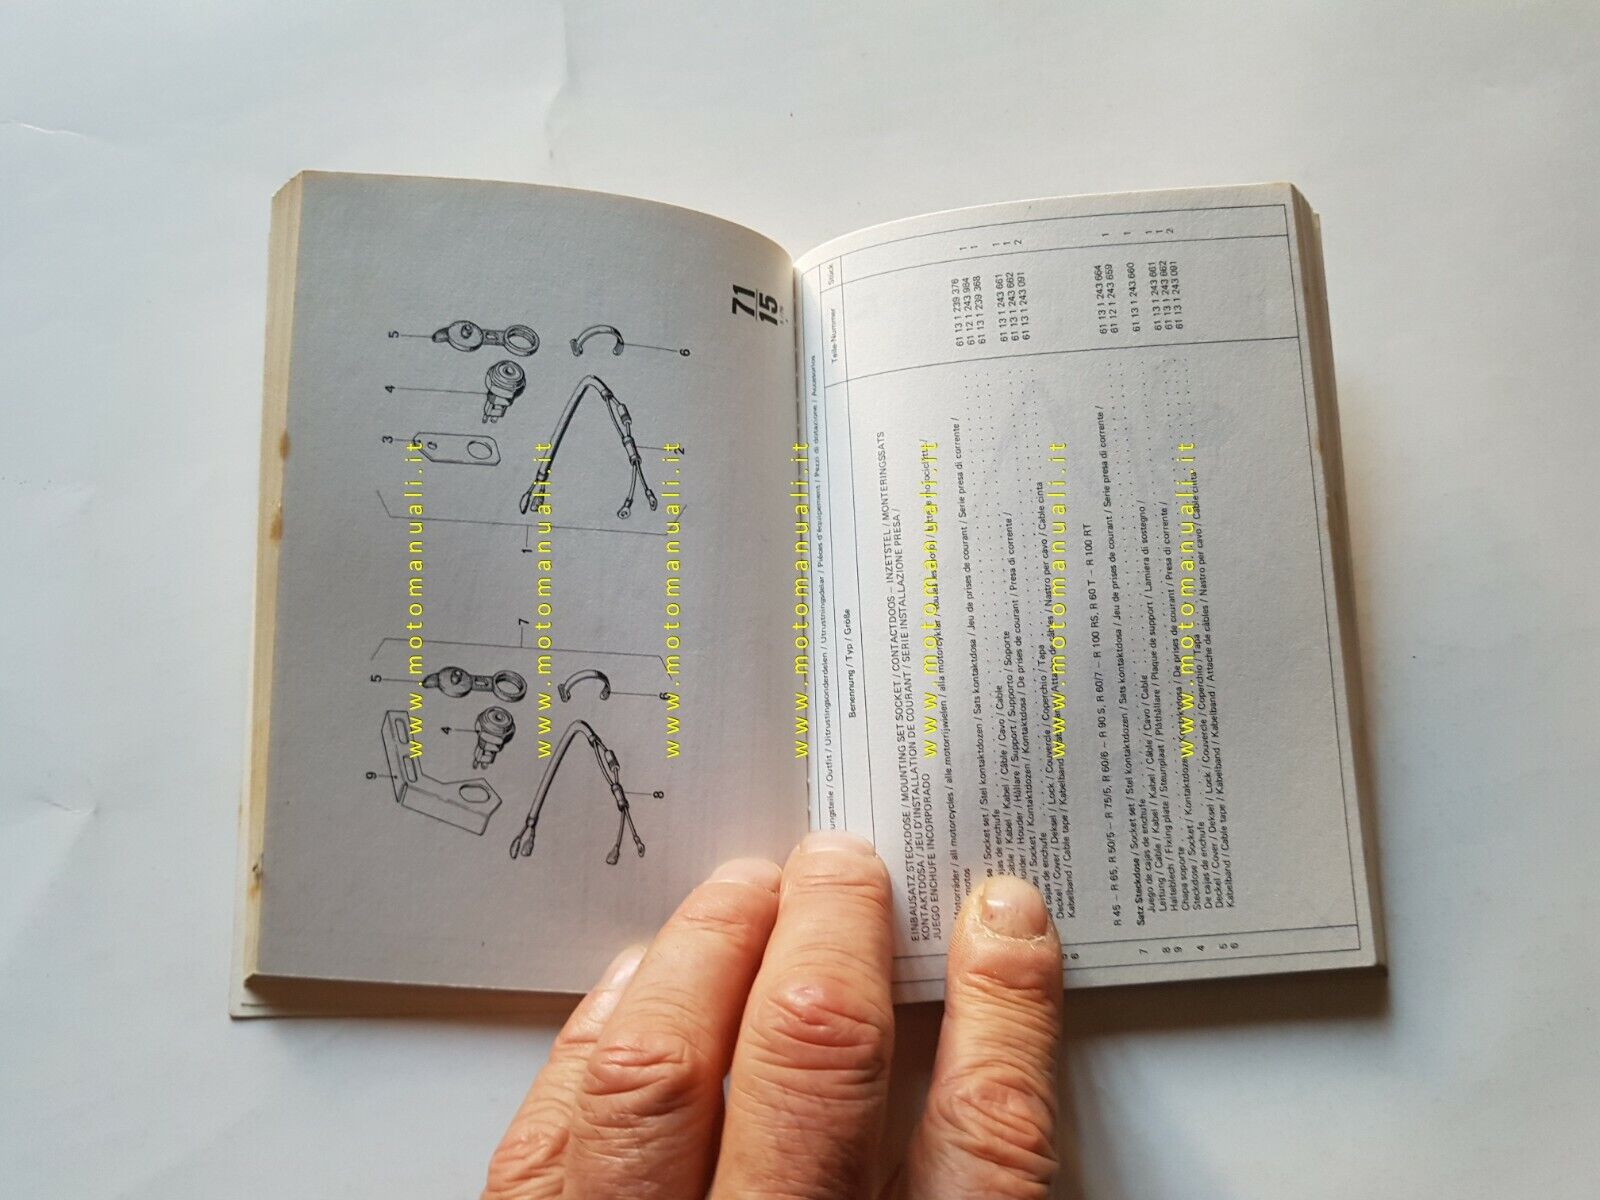 71
15
1
2
3
4
5
6
7
8
9
4
5
6
Outfit / Uitrustingsonderdelen / Utrustningsdelar / Pièces d'équipement / Pezzi di dotazione / Accesorios
Benennung / Typ / Größe
Teile-Nummer
Stück
EINBAUSATZ STECKDOSE / MOUNTING SET SOCKET / CONTACTDOOS – INZETSTEL / MONTERINGSSATS
KONTAKTDOSA / JEU D'INSTALLATION DE COURANT / SERIE INSTALLAZIONE PRESA /
JUEGO ENCHUFE INCORPORADO
Motorräder / all motorcycles / alle motorrijwielen / alla motorcyklar /
/ Socket set / Stel kontaktdozen / Sats kontaktdosa / Jeu de prises de courant / Serie presa di corrente /
cajas de enchufe
61 13 1 239 376
61 12 1 243 984 1
61 13 1 239 368 1
Kabel / Kabel / Câble / Cavo / Cable
Houder / Hållare / Support / Supporto / Soporte
/ Socket / Kontaktdozen / Kontaktdosa / De prises de courant / Presa di corrente /
de cajas de enchufe 61 13 1 243 661 1
5 Deckel / Cover / Deksel / Lock / Couvercle / Coperchio / Tapa 61 13 1 243 662 1
6 Kabelband / Cable tape / Kabelband / / Nastro per cavo / Cable cinta 61 13 1 243 091 2
R 45 – R 65, R 50/5 – R 75/5, R 60/6 – R 90 S, R 60/7 – R 100 RS, R 60 T – R 100 RT
7 Satz Steckdose / Socket set / Stel kontaktdozen / Sats kontaktdosa / Jeu de prises de courant / Serie presa di corrente /
Juego de cajas de enchufe 61 13 1 243 664
8 Leitung / Cable / Kabel / Kabel / Câble / Cavo / Cable 61 12 1 243 659 1
9 Halteblech / Fixing plate / Steunplaat / Plåthållare / Plaque de support / Lamiera di sostegno /
Chapa soporte 61 13 1 243 660 1
4 Steckdose / Socket / Kontaktdozen / Kontaktdosa / De prises de courant / Presa di corrente /
De cajas de enchufe 61 13 1 243 661 1
5 Deckel / Cover / Deksel / Lock / Couvercle / Coperchio / Tapa 61 13 1 243 662 1
6 Kabelband / Cable tape / Kabelband / Kabelband / Attache de câbles / Nastro per cavo / Cable cinta 61 13 1 243 091 2
www.motomanuali.it
www.motomanuali.it
www.motomanuali.it
www.motomanuali.it
www.motomanuali.it
www.motomanuali.it
www.motomanuali.it